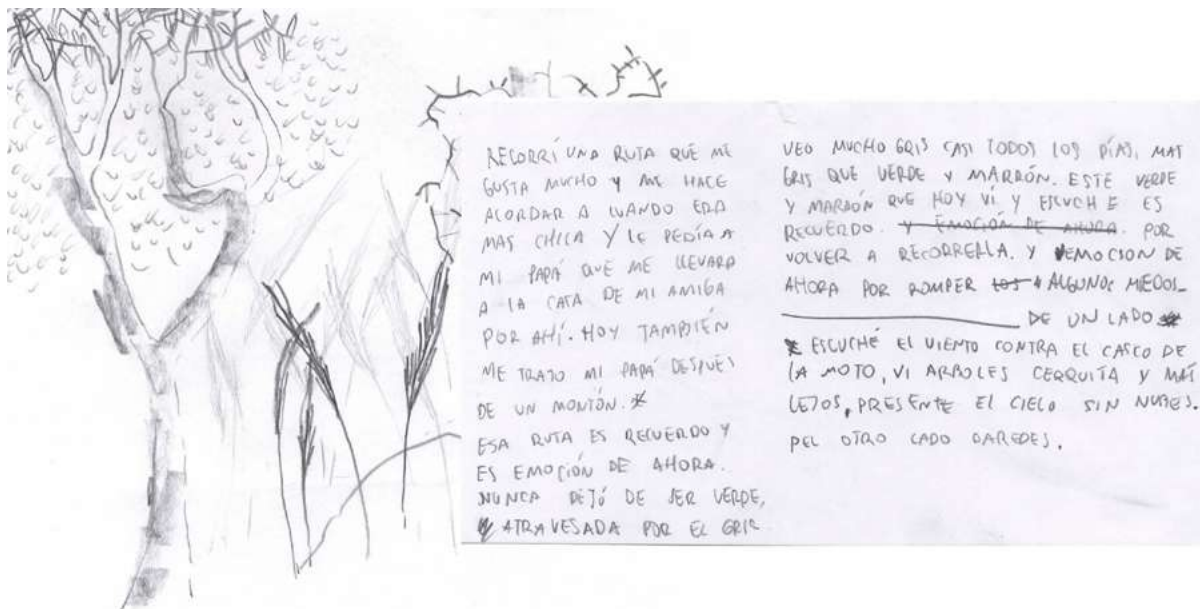 RECORRÍ UNA RUTA QUE ME
GUSTA MUCHO Y ME HACE
ACORDAR A CUANDO ERA
MAS CHICA Y LE PEDÍA A
MI PAPÁ QUE ME LLEVARA
A LA CASA DE MI AMIGA
POR AHÍ. HOY TAMBIÉN
ME TRAJO MI PAPÁ DESPUES
DE UN MONTÓN.
ESA RUTA ES RECUERDO Y
ES EMOCIÓN DE AHORA.
NUNCA DEJÓ DE SER VERDE,
ATRAVESADA POR EL GRIS
VEO MUCHO GRIS CASI TODOS LOS DÍAS, MAS
GRIS QUE VERDE Y MARRÓN. ESTE VERDE
Y MARRÓN QUE HOY VI Y ESCUCHE ES
RECUERDO. Y EMOCIÓN DE AHORA. POR
VOLVER A RECORRERLA. Y EMOCION DE
AHORA POR ROMPER LOS ALGUNOS MIEDOS_
DE UN LADO
ESCUCHÉ EL VIENTO CONTRA EL CASCO DE
LA MOTO, VI ARBOLES CERQUITA Y MAS
LEJOS, PRESENTE EL CIELO SIN NUBES.
DEL OTRO LADO PAREDES.